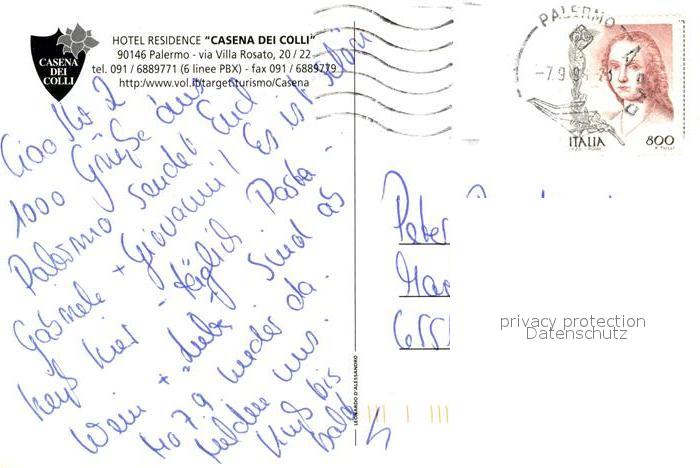 CASENA
DEI
COLLI
HOTEL RESIDENCE "CASENA DEI COLLI"
90146 Palermo - via Villa Rosato, 20 / 22
tel. 091 / 6889771 (6 linee PBX) - fax 091 / 6889779
http://www.vol.it/targetturismo/Casena
Ciao Ihr 2
1000 Grüße aus
Palermo sendet Euch
Gabriele + Giovanni! Es ist schön
heiß hier - täglich Pasta -
Wein + Liebe + Sind ab
Mo 7.9 wieder da.
Melden uns.
Kuß bis
bald
PALERMO
ITALIA
800
Peter
privacy protection
Datenschutz
LEONARDO D'ALESSANDRO